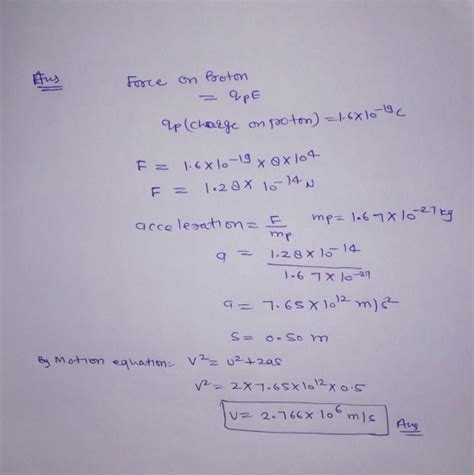 Ans Force on Proton
= qpE
qp (charge on proton) = 1.6×10⁻¹⁹ C
F = 1.6×10⁻¹⁹ × 8×10⁴
F = 1.28 × 10⁻¹⁴ N
acceleration = F/mp mp = 1.67×10⁻²⁷ kg
a = 1.28×10⁻¹⁴
1.67×10⁻²⁷
a = 7.65×10¹² m/s²
S = 0.50 m
By Motion equation = V² = U²+2as
V² = 2×7.65×10¹²×0.5
V = 2.766×10⁶ m/s Ans